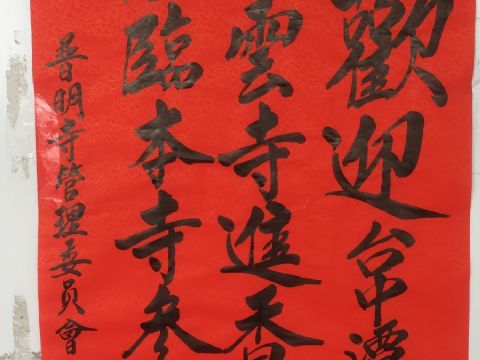 歡迎台中潭
雲寺進香
臨本寺參
普明寺管理委員會